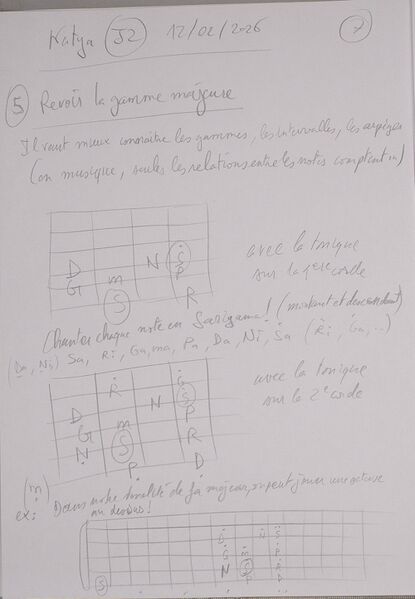 Katya J2 12/02/2026 7
5 Revoir la gamme majeure
Il vaut mieux connaître les gammes, les intervalles, les arpèges
(en musique, seules les relations entre les notes comptent)
avec la tonique
sur la 1ère corde
D m N Ṡ
G S P
R
Chanter chaque note en Sarigama! (montant et descendant)
(Da, Ni) Sa, Ri, Ga, ma, Pa, Da, Ni, Ṡa (Ṙi, Ġa, ..)
avec la tonique
sur la 2e corde
Ṙ Ġ
D N Ṡ
G m P
Ṇ S R
P D
(ṁ)
ex: Dans notre tonalité de fa majeur, on peut jouer une octave
au dessus!
S
N S